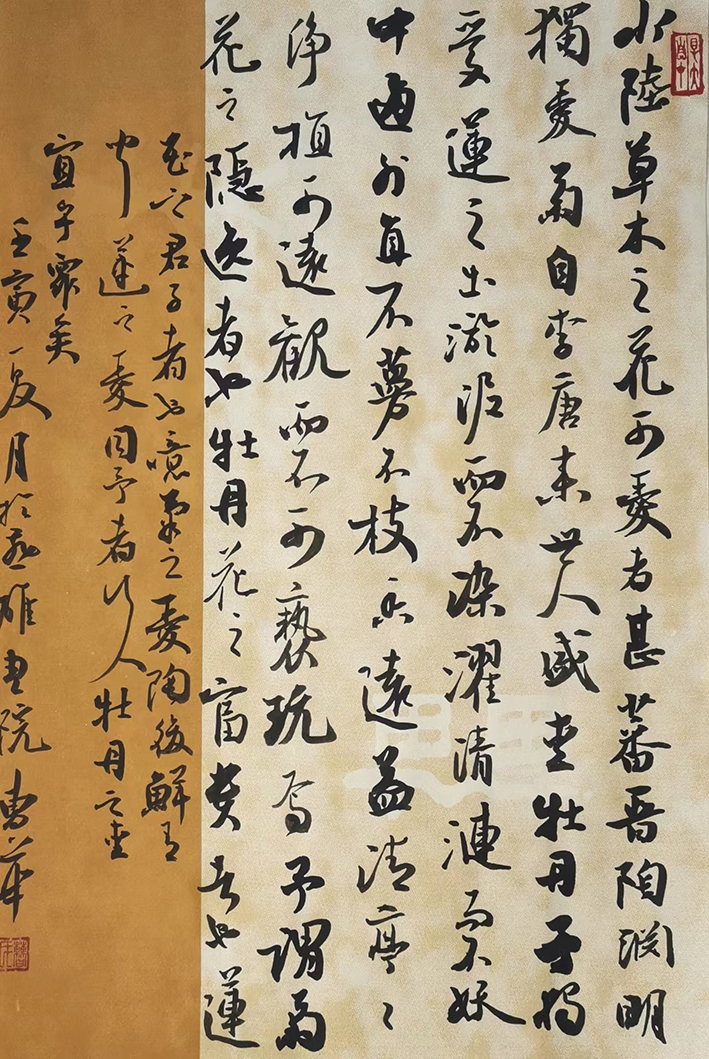 水陸草木之花可愛者甚蕃晋陶渊明
獨愛菊自李唐来世人盛爱牡丹予独
爱蓮之出淤泥而不染濯清漣而不妖
中通外直不蔓不枝香遠益清亭亭
净植可遠觀而不可褻玩焉予謂菊
花之隱逸者也牡丹花之富贵者也蓮
花之君子者也噫菊之愛陶後鮮有
闻蓮之愛同予者何人牡丹之爱
宜乎眾矣
壬寅夏月於雄書院